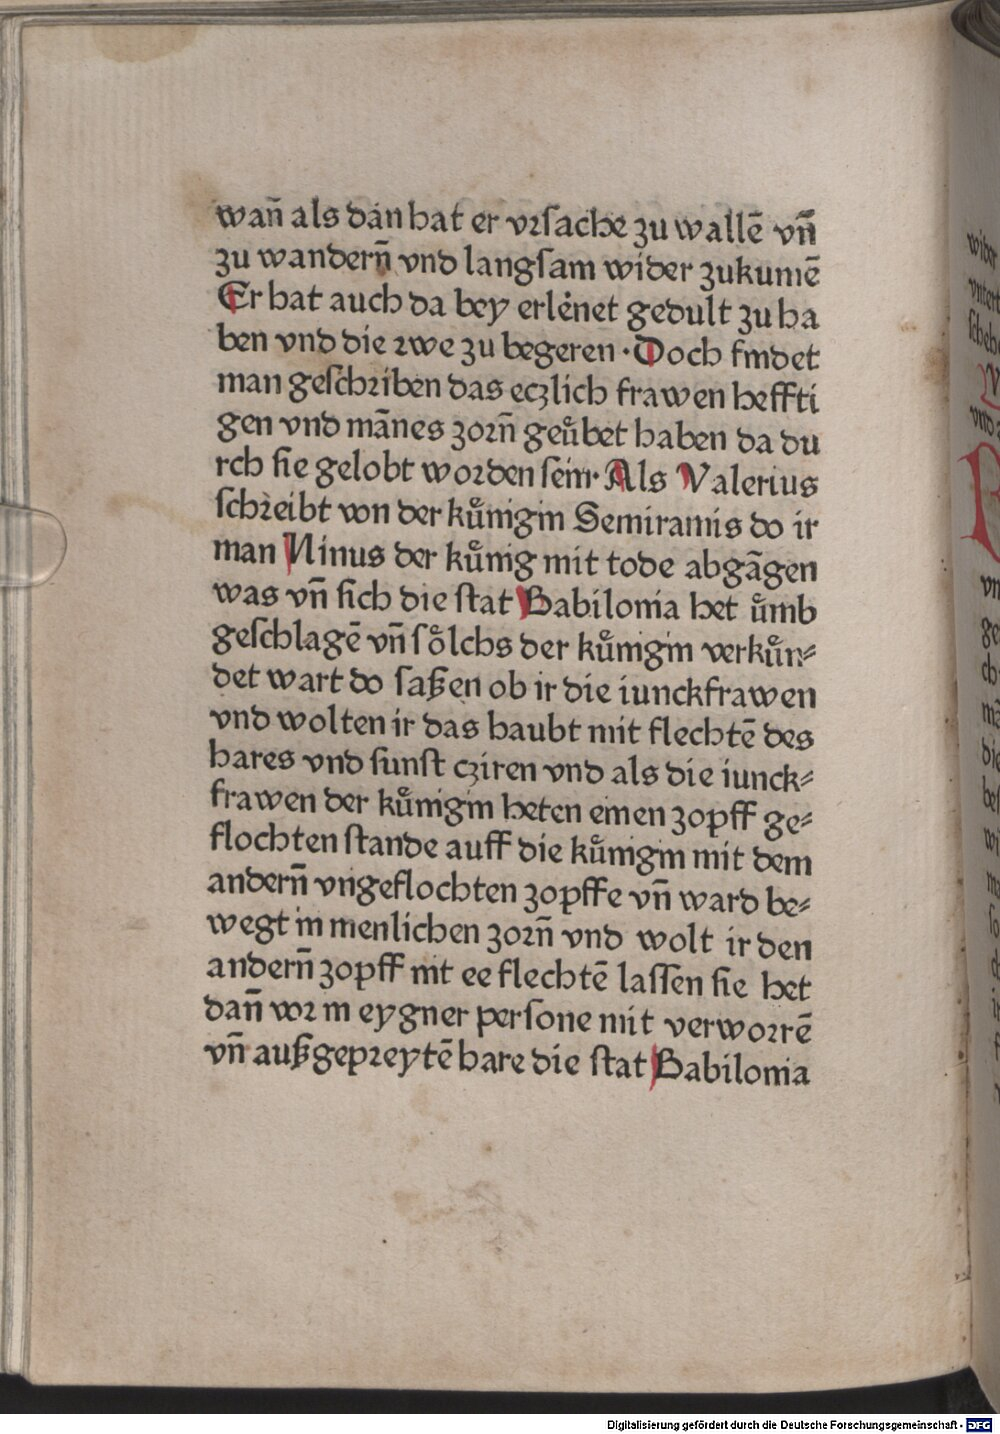 wan̄ als dan hat er vrsache zu wallē vn̄
zu wandern̄ vnd langsam wider zukumē
Er hat auch da bey erlenet gedult zu ha
ben vnd die rwe zu begeren · Doch findet
man geschriben das eczlich frawen heffti
gen vnd mānes zorn̄ geuͤbet haben da du
rch sie gelobt worden sein · Als Valerius
schreibt von der kuͤnigin Semiramis do ir
man Ninus der kuͤnig mit tode abgāgen
was vn̄ sich die stat Babilonia het uͤmb
geschlagē vn̄ soͤlchs der kuͤnigin verkuͤn⸗
det wart do saßen ob ir die iunckfrawen
vnd wolten ir das haubt mit flechtē des
hares vnd sunst cziren vnd als die iunck⸗
frawen der kuͤnigin heten einen zopff ge⸗
flochten stande auff die kuͤnigin mit dem
andern̄ vngeflochten zopffe vn̄ ward be⸗
wegt in menlichen zorn̄ vnd wolt ir den
andern̄ zopff nit ee flechtē lassen sie het
dan̄ vor in eygner persone mit verworrē
vn̄ außgepreytē hare die stat Babilonia
Digitalisierung gefördert durch die Deutsche Forschungsgemeinschaft - DFG